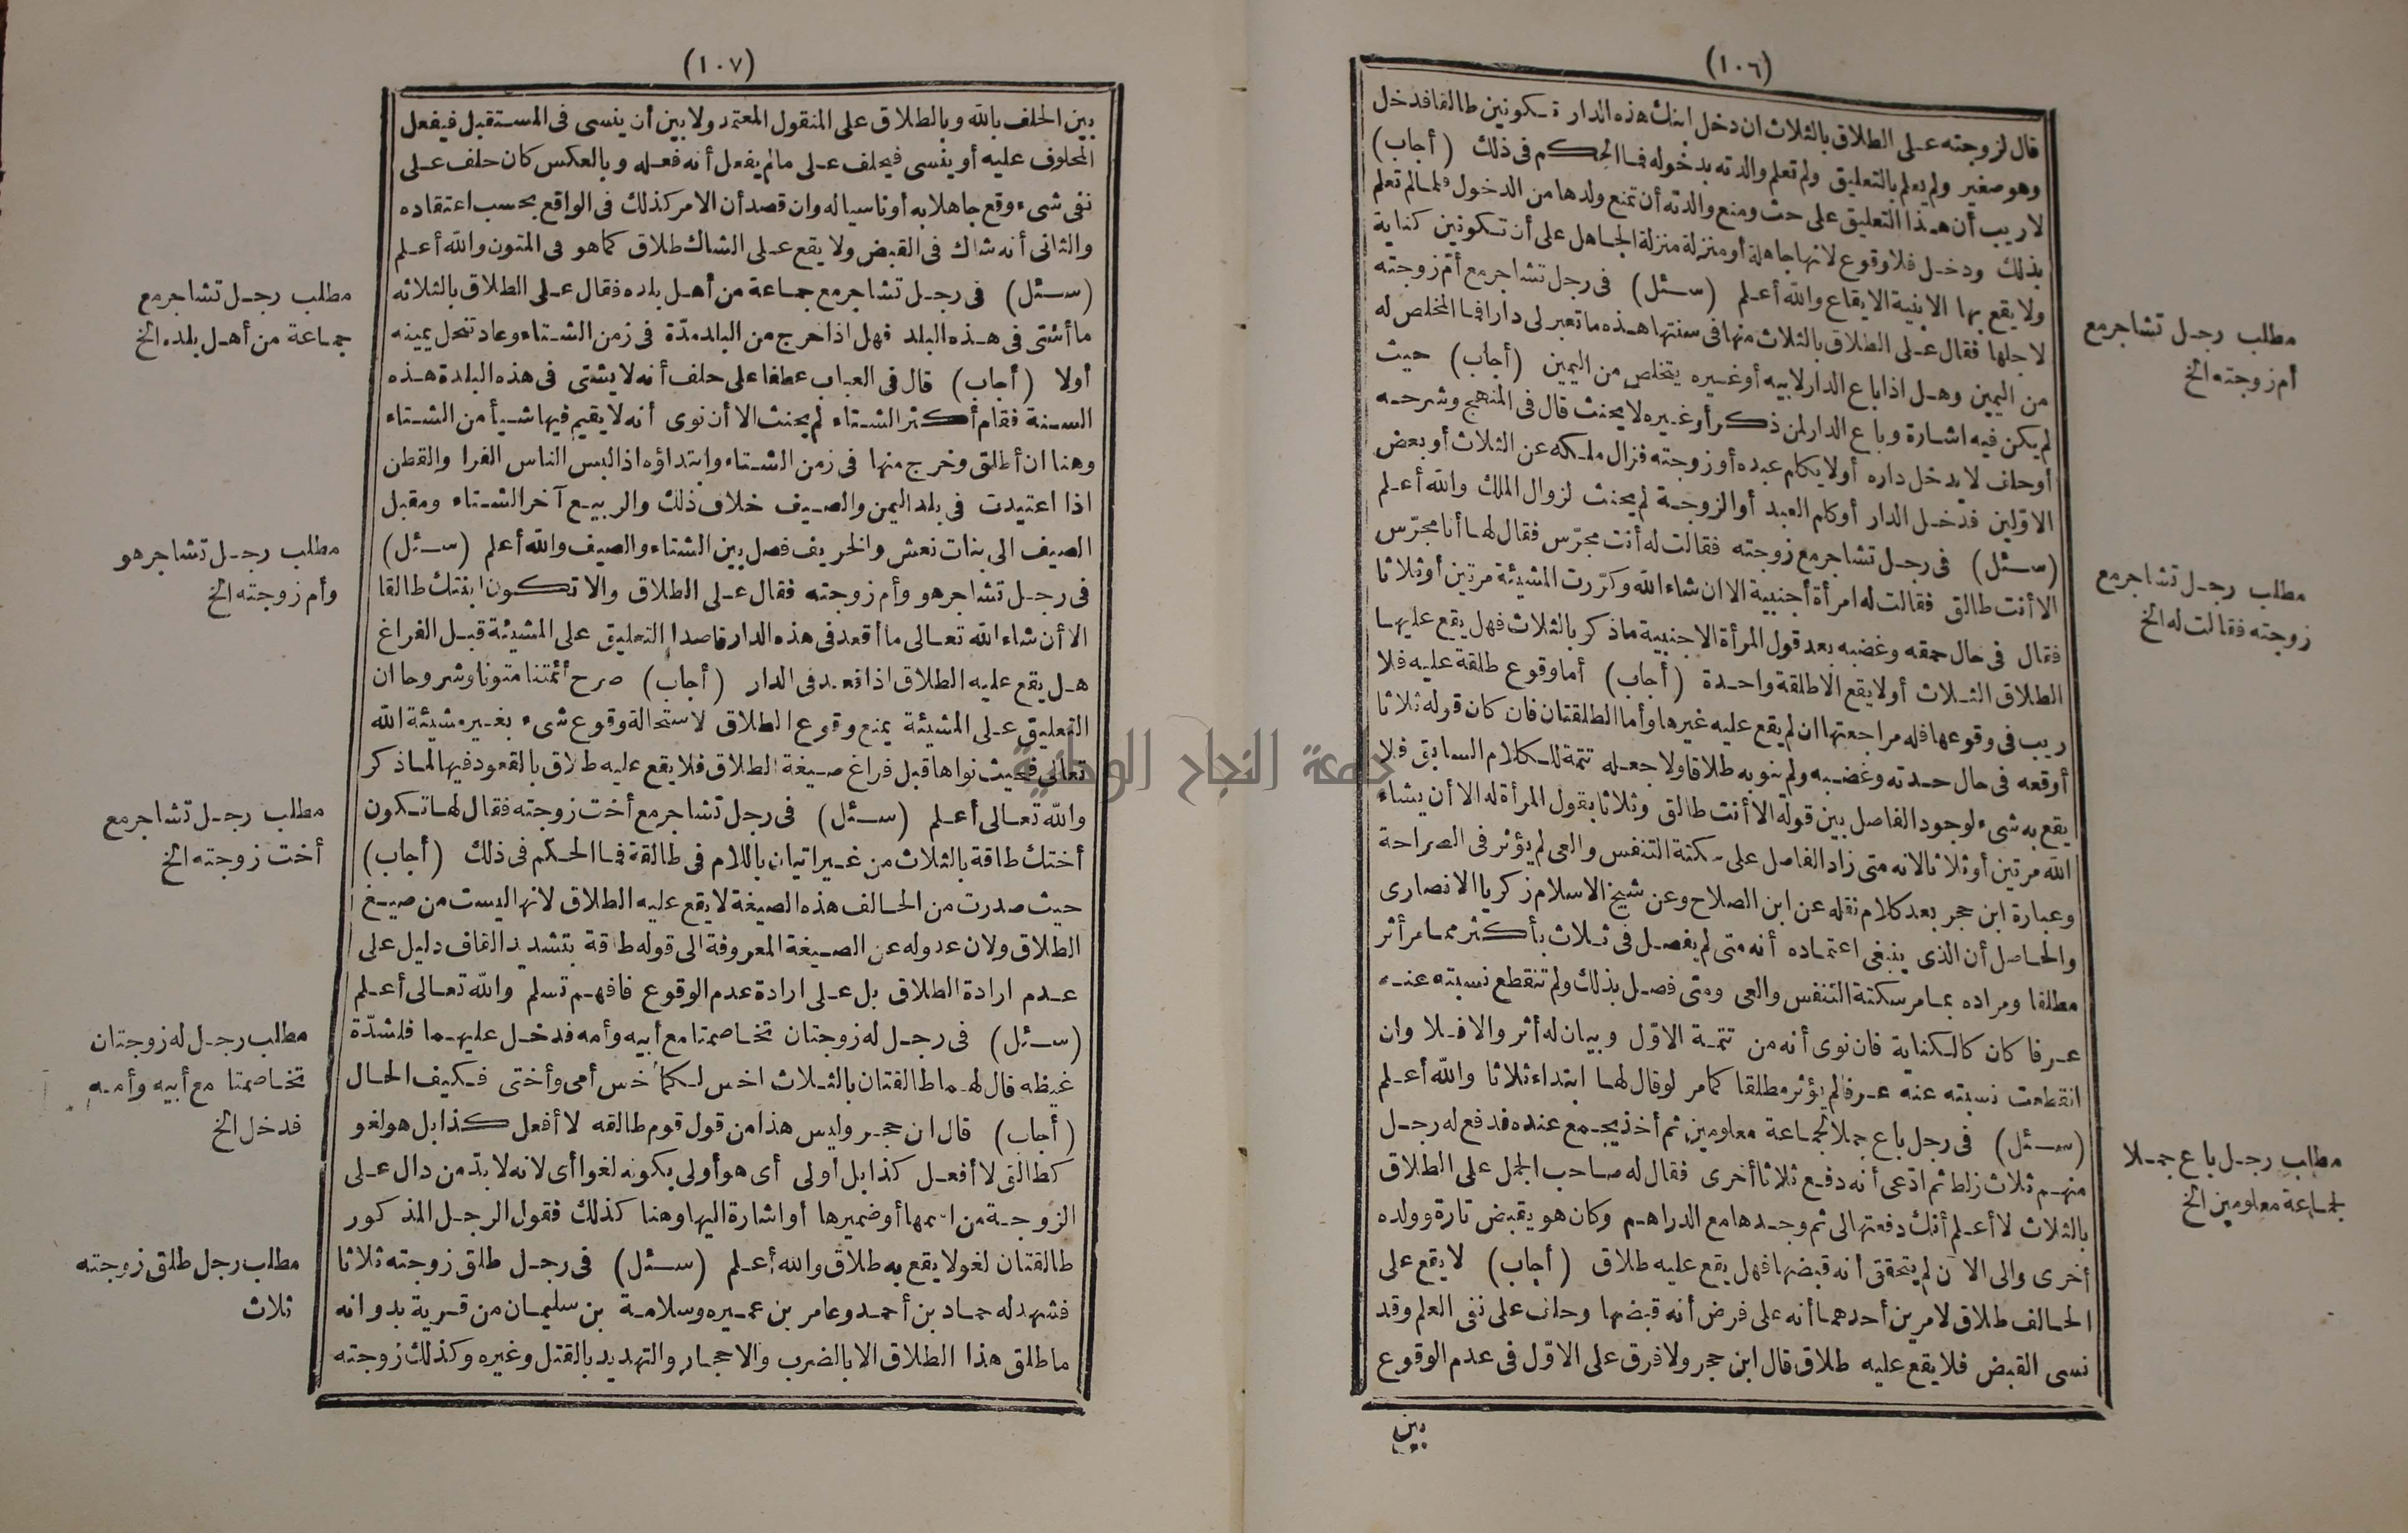 (١٠٦)
قال لزوجته على الطلاق بالثلاث ان دخل ابنك هذه الدار تكونين طالقا فدخل
وهو صغير ولم يعلم بالتعليق ولم تعلم والدته بدخوله فما الحكم فى ذلك (أجاب)
لا ريب أن هذا التعليق على حث ومنع والدته أن تمنع ولدها من الدخول فلما لم تعلم
بذلك ودخل فلا وقوع لانها جاهلة أو منزلة منزلة الجاهل على أن تكونين كناية
ولا يقع بها الا بنية الايقاع والله أعلم (سئل) فى رجل تشاجر مع أم زوجته
لاجلها فقال على الطلاق بالثلاث منها فى سنتها هذه ما تعبر لى دارا فما المخلص له
من اليمين وهل اذا باع الدار لابيه أو غيره يتخلص من اليمين (أجاب) حيث
لم يكن فيه اشارة وباع الدار لمن ذكر أو غيره لا يحنث قال فى المنهج وشرحه
أو حلف لا يدخل داره أو لا يكلم عبده أو زوجته فزال ملكه عن الثلاث أو بعض
الاولين فدخل الدار أو كلم العبد أو الزوجة لم يحنث لزوال الملك والله أعلم
(سئل) فى رجل تشاجر مع زوجته فقالت له أنت مجرّس فقال لها أنا مجرّس
الا أنت طالق فقالت له امرأة أجنبية الا ان شاء الله وكرّرت المشيئة مرتين أو ثلاثا
فقال فى حال حمقه وغضبه بعد قول المرأة الاجنبية ماذكر بالثلاث فهل يقع عليها
الطلاق الثلاث أو لا يقع الا طلقة واحدة (أجاب) أما وقوع طلقة عليه فلا
ريب فى وقوعها فله مراجعتها ان لم يقع عليه غيرها وأما الطلقتان فان كان قوله ثلاثا
أوقعه فى حال حدته وغضبه ولم ينو به طلاقا ولا جعله تتمة للكلام السابق فلا
يقع به شىء لوجود الفاصل بين قوله الا أنت طالق وثلاثا بقول المرأة له الا أن يشاء
الله مرتين أو ثلاثا لانه متى زاد الفاصل على سكتة التنفس والعى لم يؤثر فى الصراحة
وعبارة ابن حجر بعد كلام نقله عن ابن الصلاح وعن شيخ الاسلام زكريا الانصارى
والحاصل أن الذى ينبغى اعتماده أنه متى لم يفصل فى ثلاث بأكثر مما مر أثر
مطلقا ومراده بما مر سكتة التنفس والعى ومتى فصل بذلك ولم تنقطع نسبته عنه
عرفا كان كالكناية فان نوى أنه من تتمة الاوّل وبيان له أثر والا فلا وان
انقطعت نسبته عنه عرفا لم يؤثر مطلقا كما مر لو قال لها ابتداء ثلاثا والله أعلم
(سئل) فى رجل باع جملا لجماعة معلومين ثم أخذ يجمع عنده فدفع له رجل
منهم ثلاث زلط ثم ادّعى أنه دفع ثلاثا أخرى فقال له صاحب الجمل على الطلاق
بالثلاث لا أعلم أنك دفعتها لى ثم وجدها مع الدراهم وكان هو يقبض تارة وولده
أخرى والى الآن لم يتحقق أنه قبضها فهل يقع عليه طلاق (أجاب) لا يقع على
الحالف طلاق لامرين أحدهما أنه على فرض أنه قبضها وحلف على نفى العلم وقد
نسى القبض فلا يقع عليه طلاق قال ابن حجر ولا فرق على الاوّل فى عدم الوقوع
بين
مطلب رجل تشاجر مع
أم زوجته الخ
مطلب رجل تشاجر مع
زوجته فقالت له الخ
مطلب رجل باع جملا
لجماعة معلومين الخ
(١٠٧)
بين الحلف بالله وبالطلاق على المنقول المعتمد ولا بين أن ينسى فى المستقبل فيفعل
المحلوف عليه أو ينسى فيحلف على مالم يفعل أنه فعله وبالعكس كان حلف على
نفى شىء وقع جاهلا به أو ناسيا له وان قصد أن الامر كذلك فى الواقع بحسب اعتقاده
والثانى أنه شاك فى القبض ولا يقع على الشاك طلاق كما هو فى المتون والله أعلم
(سئل) فى رجل تشاجر مع جماعة من أهل بلده فقال على الطلاق بالثلاثه
ما أشتى فى هذه البلد فهل اذا خرج من البلد مدّة فى زمن الشتاء وعاد تنحل يمينه
أولا (أجاب) قال فى العباب عطفا على حلف أنه لا يشتى فى هذه البلدة هذه
السنة فقام أكثر الشتاء لم يحنث الا أن نوى أنه لا يقيم فيها شيأ من الشتاء
وهنا ان أطلق وخرج منها فى زمن الشتاء وابتداؤه اذا لبس الناس الفرا والقطن
اذا اعتيدت فى بلد اليمن والصيف خلاف ذلك والربيع آخر الشتاء ومقبل
الصيف الى بنات نعش والخريف فصل بين الشتاء والصيف والله أعلم (سئل)
فى رجل تشاجر هو وأم زوجته فقال على الطلاق والا تكون ابنتك طالقا
الا أن شاء الله تعالى ما أقعد فى هذه الدار قاصدا التعليق على المشيئة قبل الفراغ
هل يقع عليه الطلاق اذا قعد فى الدار (أجاب) صرح أئمتنا متونا وشروحا ان
التعليق على المشيئة يمنع وقوع الطلاق لاستحالة وقوع شىء بغير مشيئة الله
تعالى فحيث نواها قبل فراغ صيغة الطلاق فلا يقع عليه طلاق بالقعود فيها لما ذكر
والله تعالى أعلم (سئل) فى رجل تشاجر مع أخت زوجته فقال لها تكون
أختك طاقة بالثلاث من غير اتيان باللام فى طالقة فما الحكم فى ذلك (أجاب)
حيث صدرت من الحالف هذه الصيغة لا يقع عليه الطلاق لانها ليست من صيغ
الطلاق ولان عدوله عن الصيغة المعروفة الى قوله طاقة بتشديد القاف دليل على
عدم ارادة الطلاق بل على ارادة عدم الوقوع فافهم تسلم والله تعالى أعلم
(سئل) فى رجل له زوجتان تخاصمتا مع أبيه وأمه فدخل عليهما فلشدّة
غيظه قال لهما طالقتان بالثلاث اخس لكما خس أمى وأختى فكيف الحال
(أجاب) قال ابن حجر وليس هذا من قول قوم طالقه لا أفعل كذا بل هو لغو
كطالق لا أفعل كذا بل أولى أى هو أولى بكونه لغوا أى لانه لا بدّ من دال على
الزوجة من اسمها أو ضميرها أو اشارة اليها وهنا كذلك فقول الرجل المذكور
طالقتان لغو لا يقع به طلاق والله أعلم (سئل) فى رجل طلق زوجته ثلاثا
فشهد له حماد بن أحمد وعامر بن عميره وسلامة بن سليمان من قرية بدوانه
ما طلق هذا الطلاق الا بالضرب والاحجار والتهديد بالقتل وغيره وكذلك زوجته
مطلب رجل تشاجر مع
جماعة من أهل بلده الخ
مطلب رجل تشاجر هو
وأم زوجته الخ
مطلب رجل تشاجر مع
أخت زوجته الخ
مطلب رجل له زوجتان
تخاصمتا مع أبيه وأمه
فدخل الخ
مطلب رجل طلق زوجته
ثلاث
جامعة النجاح الوطنية